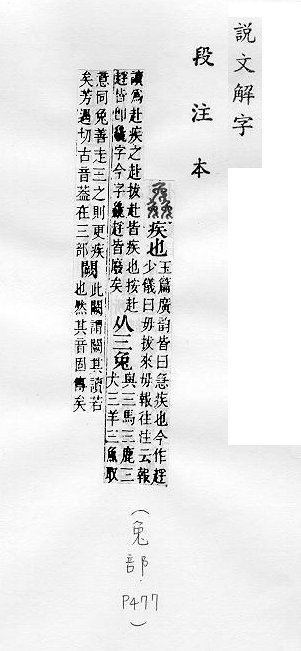 説文解字
段注本
𠓗 疾也 玉篇廣韵皆曰急疾也今作 少儀曰毋拔來毋報往注云報
讀爲赴疾之赴拔赴皆疾也按赴 皆卽𠓗字今字𠓗 皆廢矣 从三兔 與三馬三鹿三犬三羊三魚取
意同兔善走三之則更疾矣芳遇切古音葢在三部 闕 此闕謂闕其讀若也然其音固傳矣
(兔部.P477)